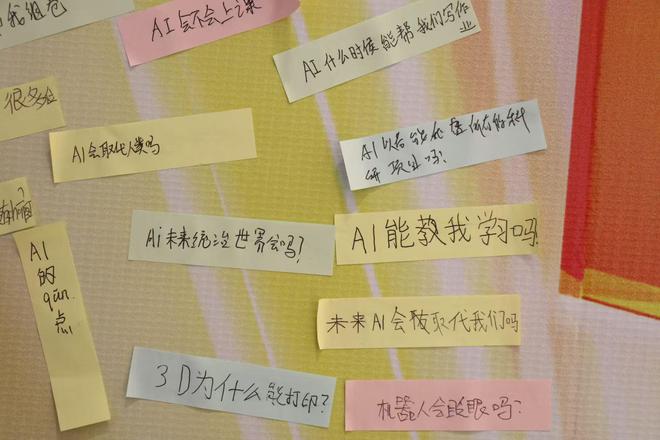 我组
AI会不会上课
AI什么时候能帮我们写作业
很多
AI会取代人类吗
AI以后能
研项
吗?
Ai未来统治世界会吗?
AI能教我学习吗
AI
的
qūn
点
未来AI会被取代我们吗
3D为什么能打印?
机器人会眨眼吗?